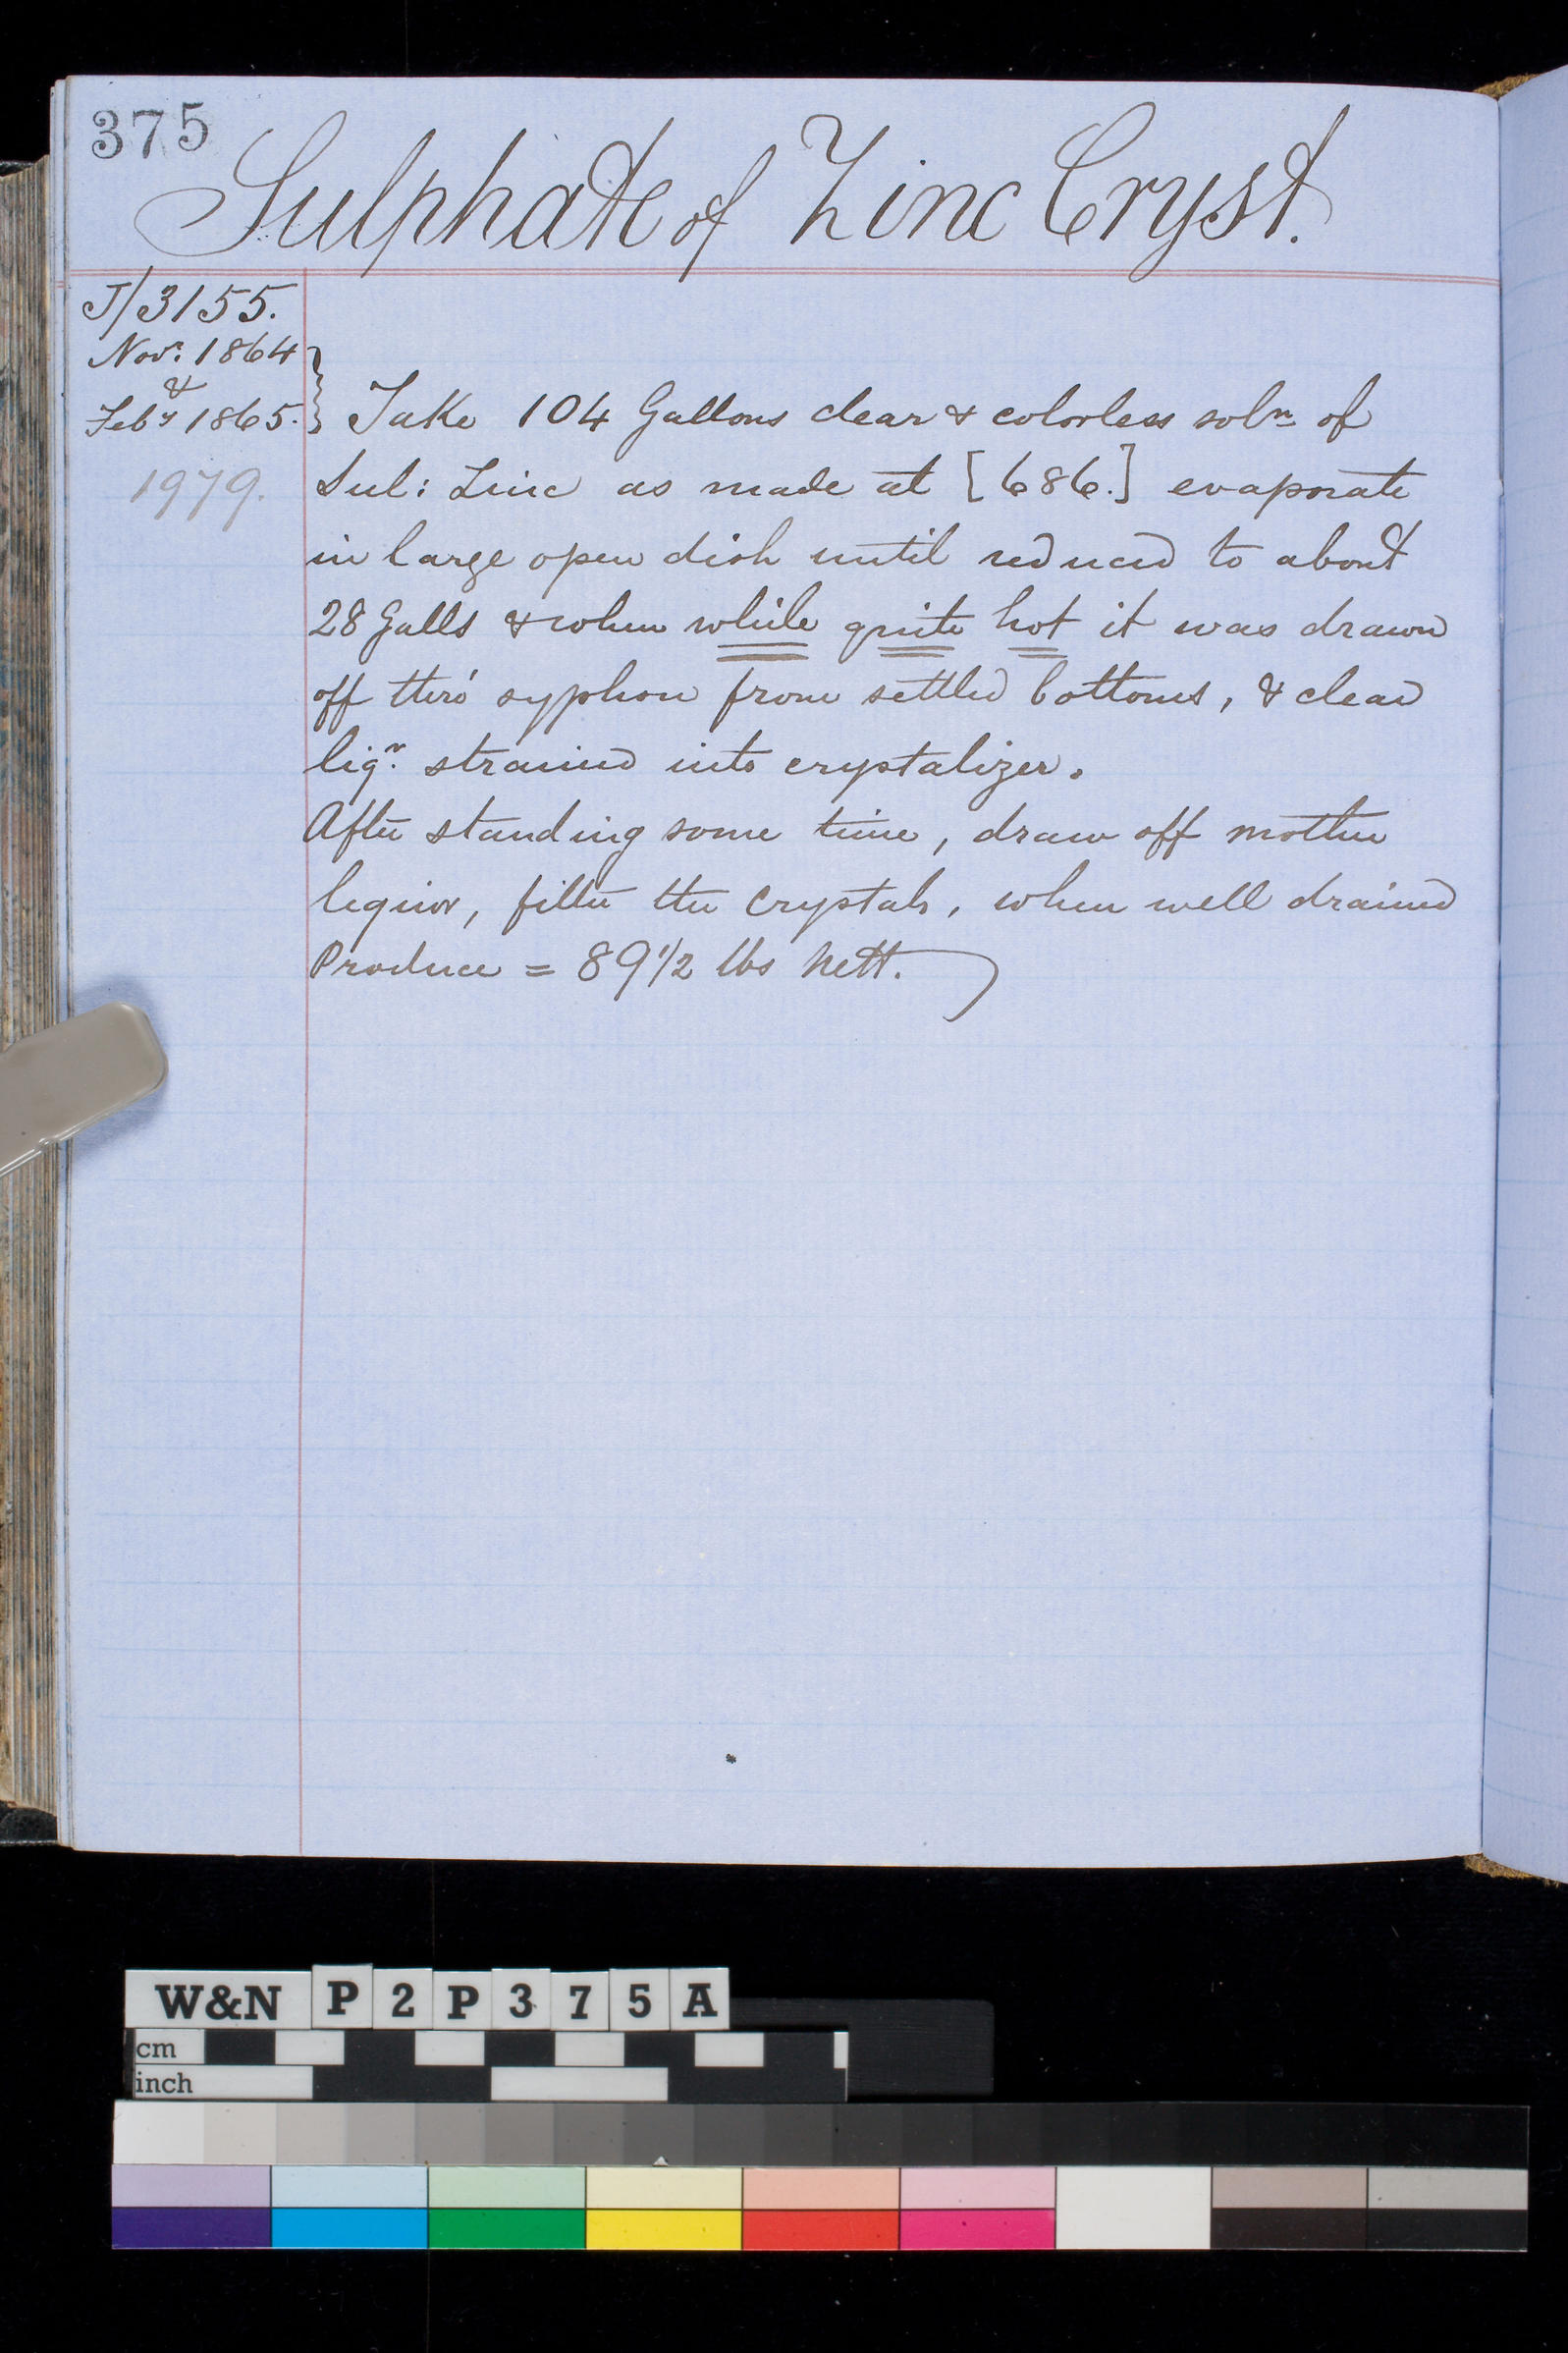 375
Sulphate of Zinc Cryst.
J/3155.
Nov: 1864
&
Feby 1865.
1979.
Take 104 Gallons clear & colorless soln of
Sul: Zinc as made at [686.] evaporate
in large open dish until reduced to about
28 Galls & when while quite hot it was drawn
off thro' syphon from settled bottoms, & clear
liqr. strained into crystalizer.
After standing some time, draw off mother
liquor, filter the Crystals, when well drained
Produce = 89 1/2 lbs nett.
W&N P2P375A
cm
inch